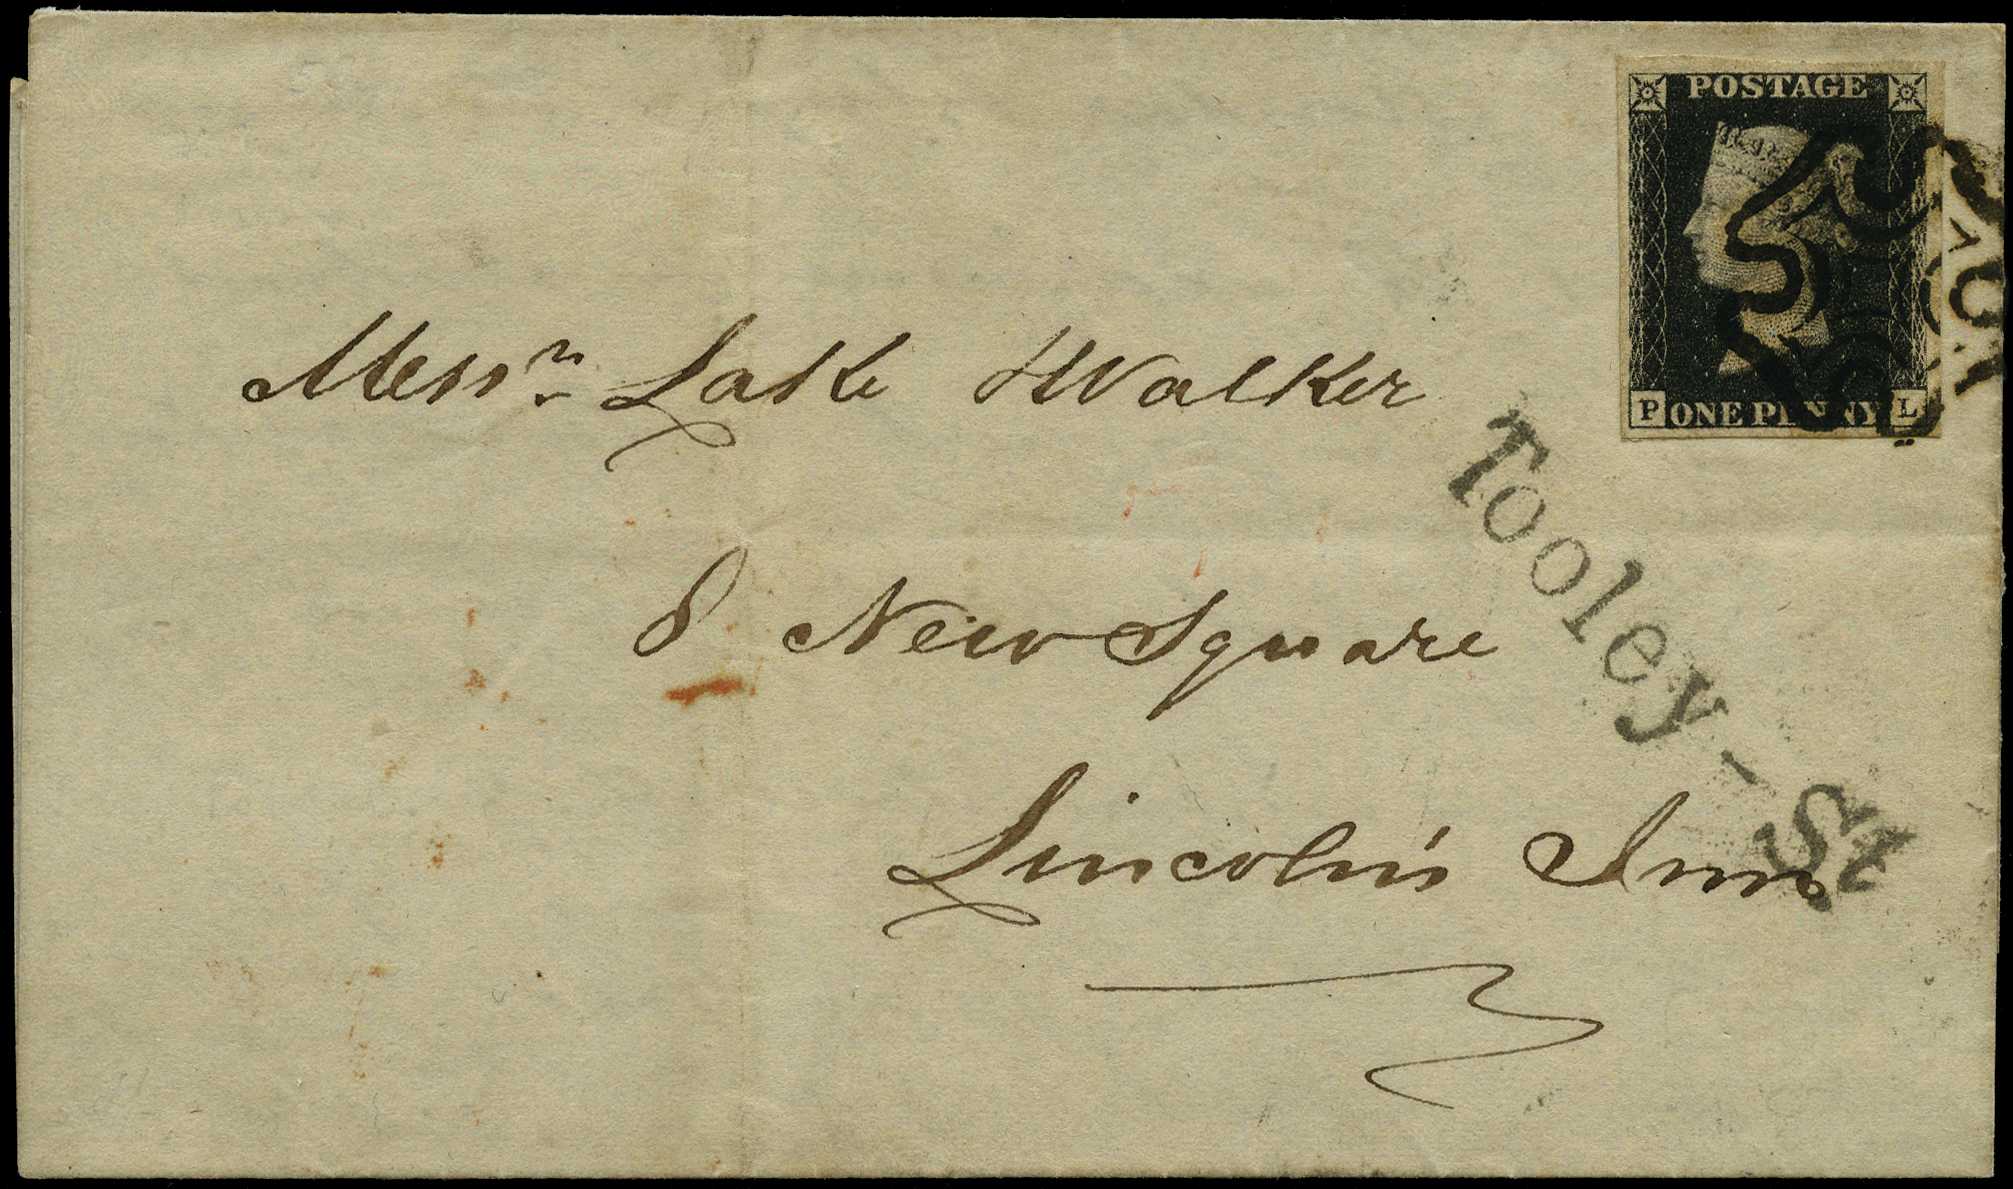 POSTAGE
P ONE PENNY L
Messrs Lake & Walker
Tooley-St
8 New Square
Lincoln's Inn